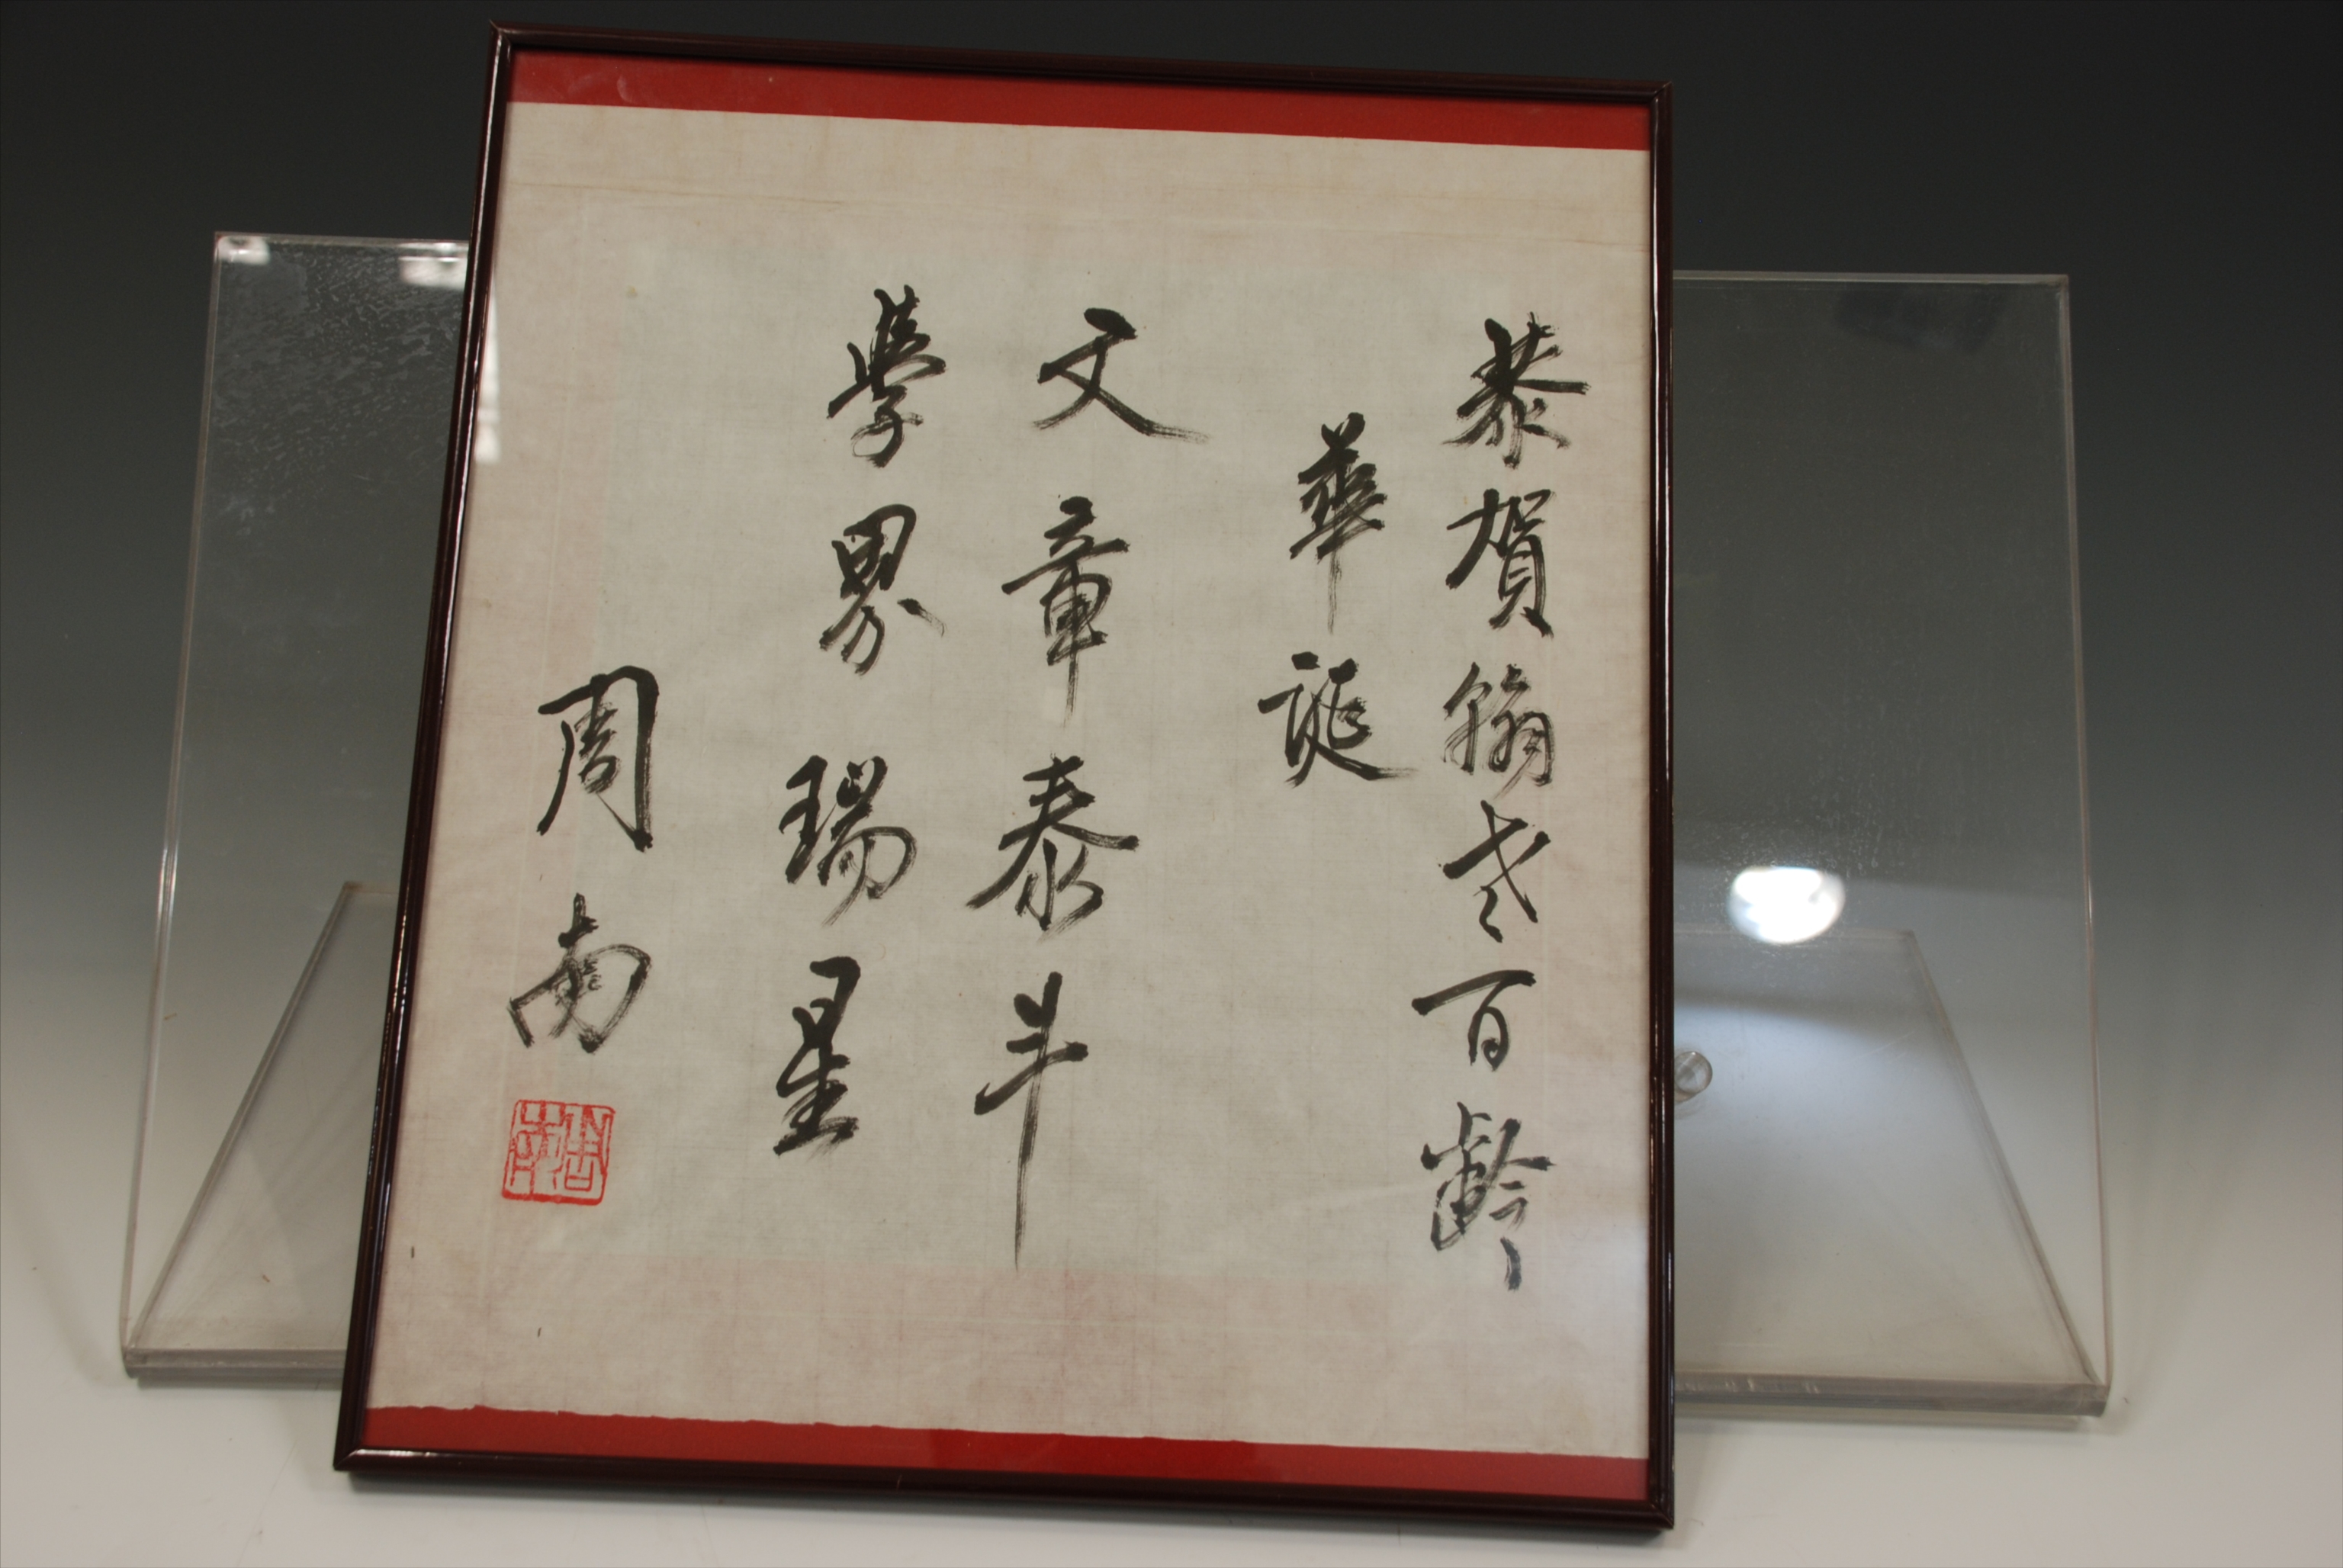 恭賀翰老百齡
華誕
文章泰斗
學界瑞星
周南
周南